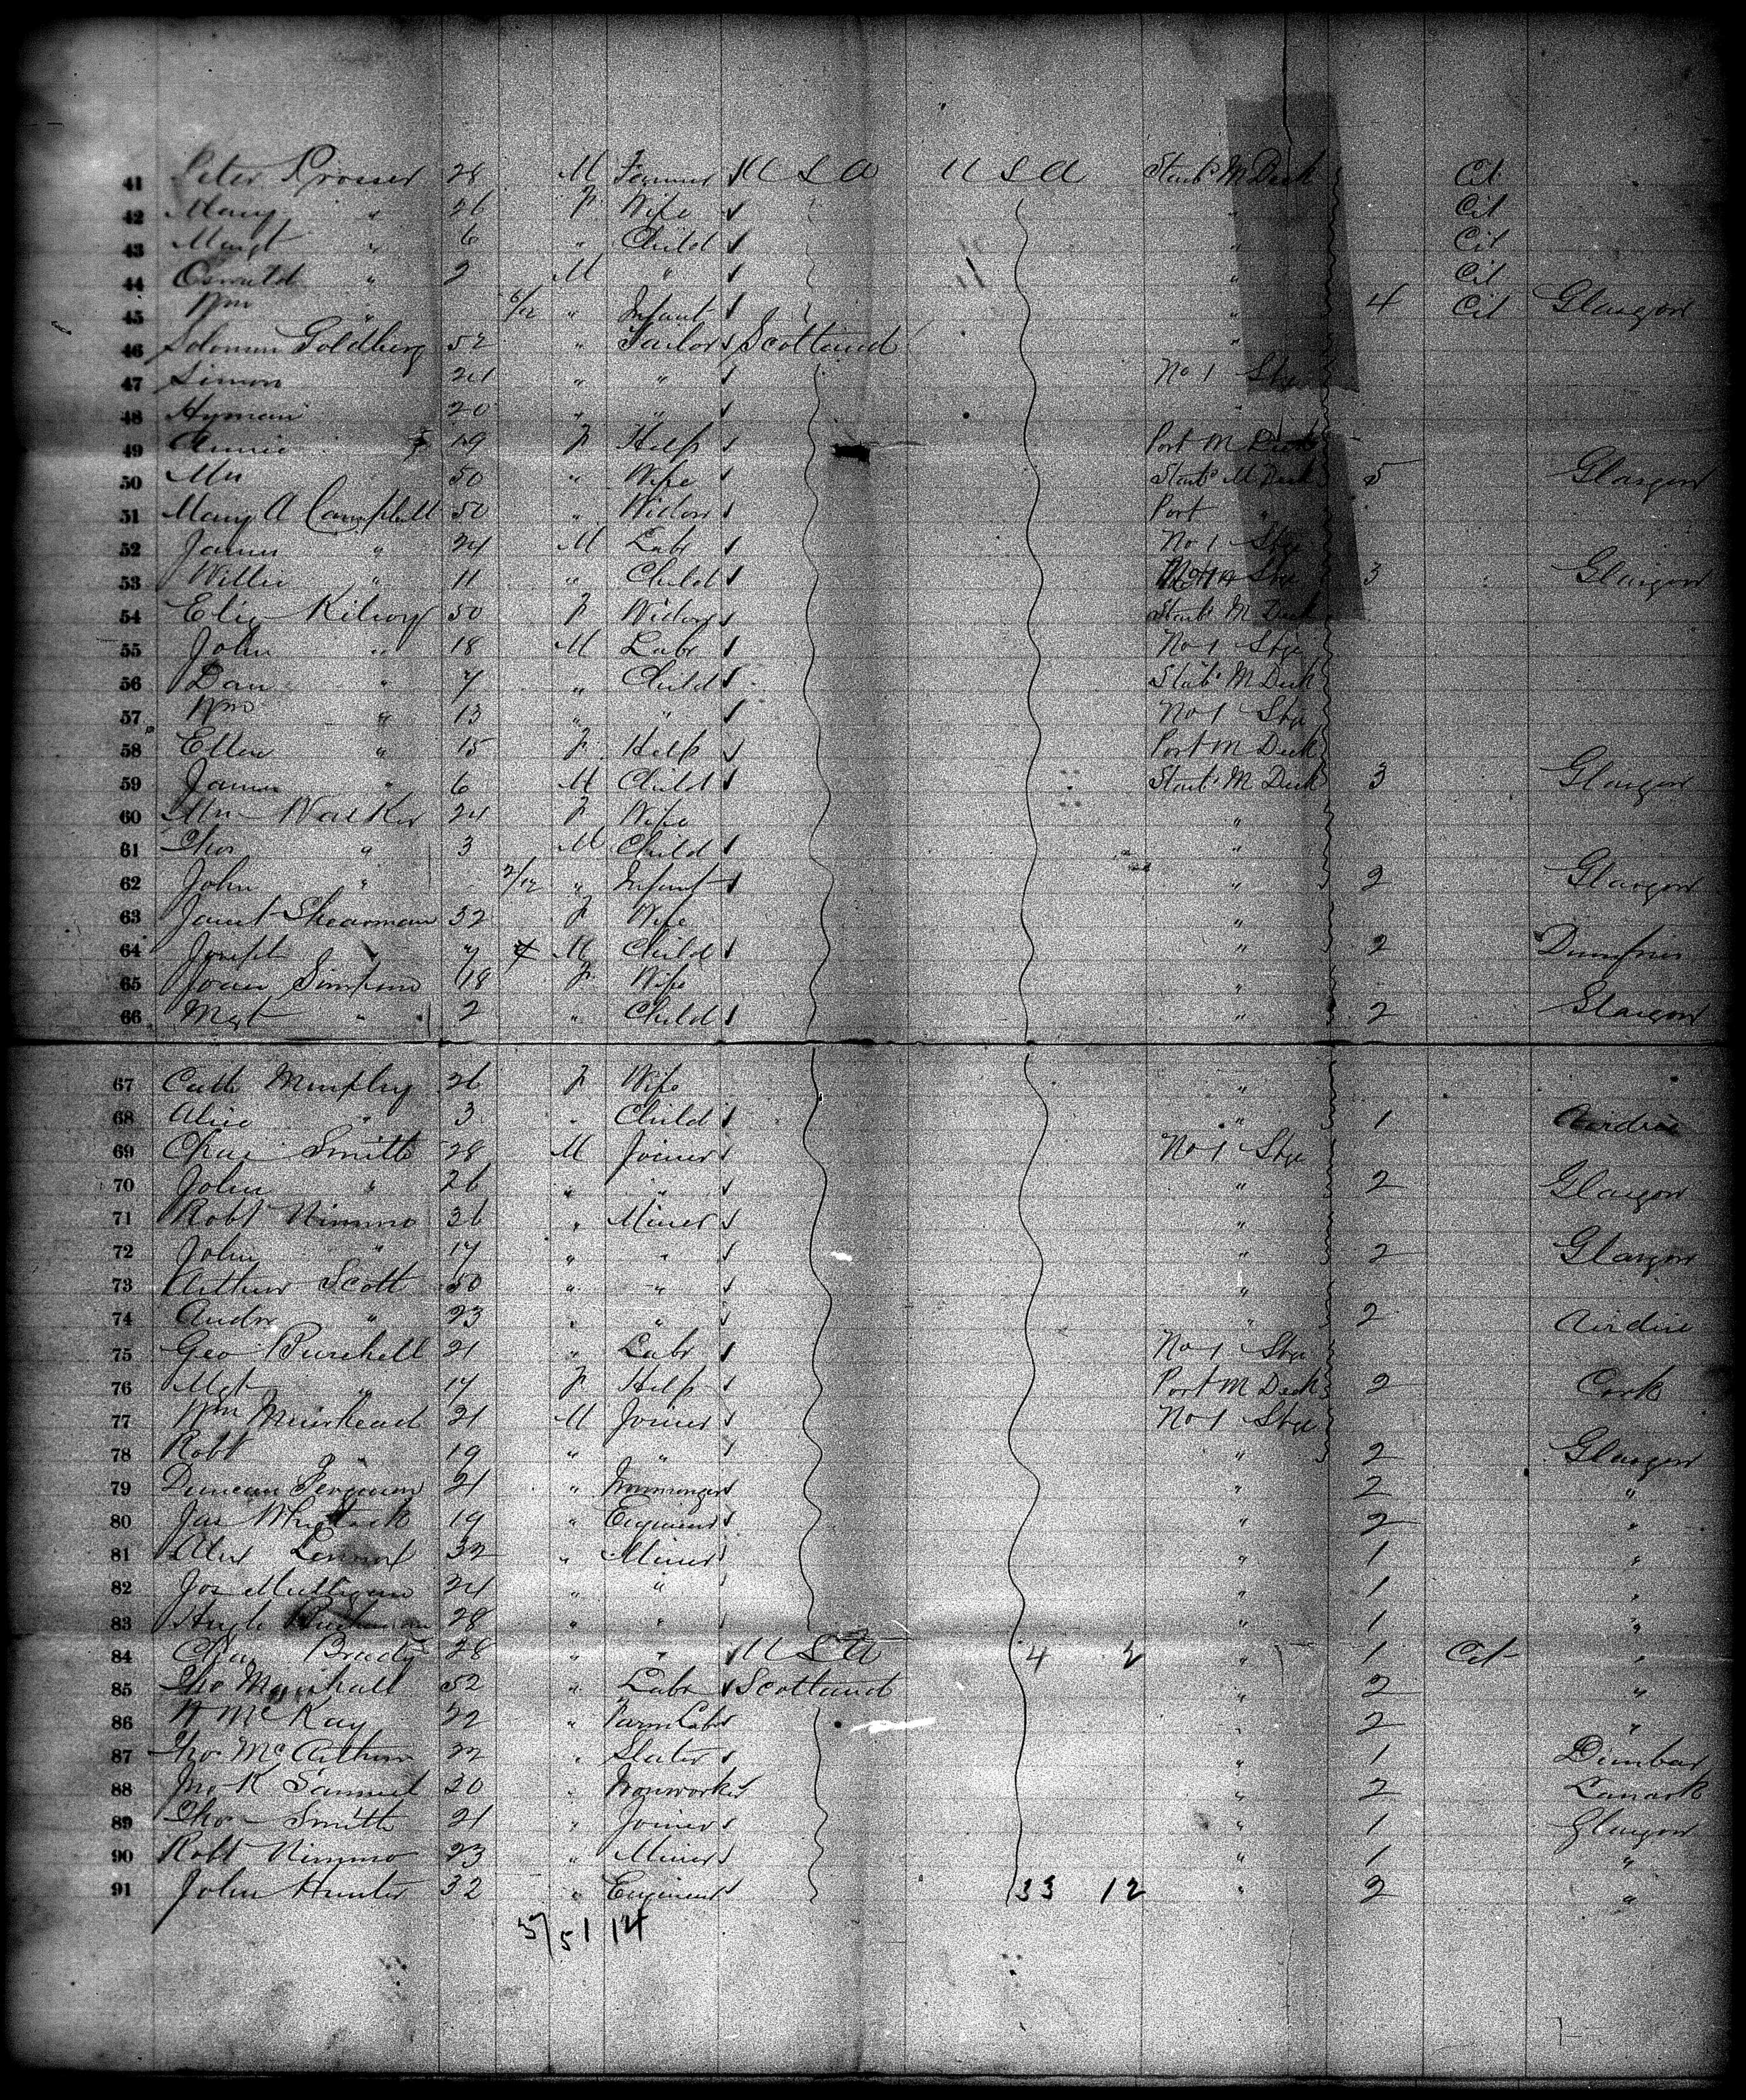 41 Peter Prosser 28 M Farmer USA USA Starb M Deck Cit
42 Mary " 26 F Wife " Cit
43 Margt " 6 " Child " Cit
44 Oswald " 2 M " " Cit
45 Wm " 6/12 " Infant " 4 Cit Glasgow
46 Solomon Goldberg 52 " Tailor Scotland "
47 Simon 21 " " No 1 Stge
48 Hyman 20 " " "
49 Annie 19 F Help Port M Deck
50 Mrs 50 " Wife Starb M Deck 5 Glasgow
51 Mary A Campbell 50 " Widow Port "
52 James " 24 M Labr No 1 Stge
53 Willie " 11 " Child Stge 3 Glasgow
54 Eliz Kilroy 50 F Widow Starb M Deck
55 John " 18 M Labr No 1 Stge
56 Dan " 7 " Child Starb M Deck
57 Wm " 13 " " No 1 Stge
58 Ellen " 15 F Help Port M Deck
59 James " 6 M Child Starb M Deck 3 Glasgow
60 Mrs Walker 24 F Wife "
61 Thos " 3 M Child "
62 John " 2/12 " Infant " 2 Glasgow
63 Janet Shearman 32 F Wife "
64 Joseph " 7 M Child " 2 Dumfries
65 Joan Simpson 18 F Wife "
66 Mgt " 2 " Child " 2 Glasgow
67 Cath Murphy 26 F Wife "
68 Alice " 3 " Child " 1 Airdrie
69 Chas Smith 28 M Joiner No 1 Stge
70 John " 26 " " " 2 Glasgow
71 Robt Nimmo 36 " Miner "
72 John " 17 " " " 2 Glasgow
73 Arthur Scott 50 " " "
74 Andw " 23 " " " 2 Airdrie
75 Geo Burchell 21 " Labr No 1 Stge
76 Mgt " 17 F Help Port M Deck 2 Cork
77 Wm Muirhead 21 M Joiner No 1 Stge
78 Robt " 19 " " " 2 Glasgow
79 Duncan Ferguson 21 " Ironmonger " 2 "
80 Jas 19 " Engineer " 2 "
81 Alex Lennox 32 " Miner " 1 "
82 Jos Mulligan 24 " " " 1 "
83 Hugh Buchanan 28 " " " 1 "
84 Chas Brady 28 " " USA 4 2 " 1 Cit "
85 Tho Marshall 52 " Labr Scotland " 2 "
86 W McKay 22 " Farm Labr " 2 "
87 Tho McArthur 22 " Slater " 1 Dunbar
88 Jno K Samuel 30 " Ironworker " 2 Lanark
89 Thos Smith 21 " Joiner " 1 Glasgow
90 Robt Nimmo 23 " Miner " 1 "
91 John Hunter 32 " Engineer 33 12 " 2 "
51 14